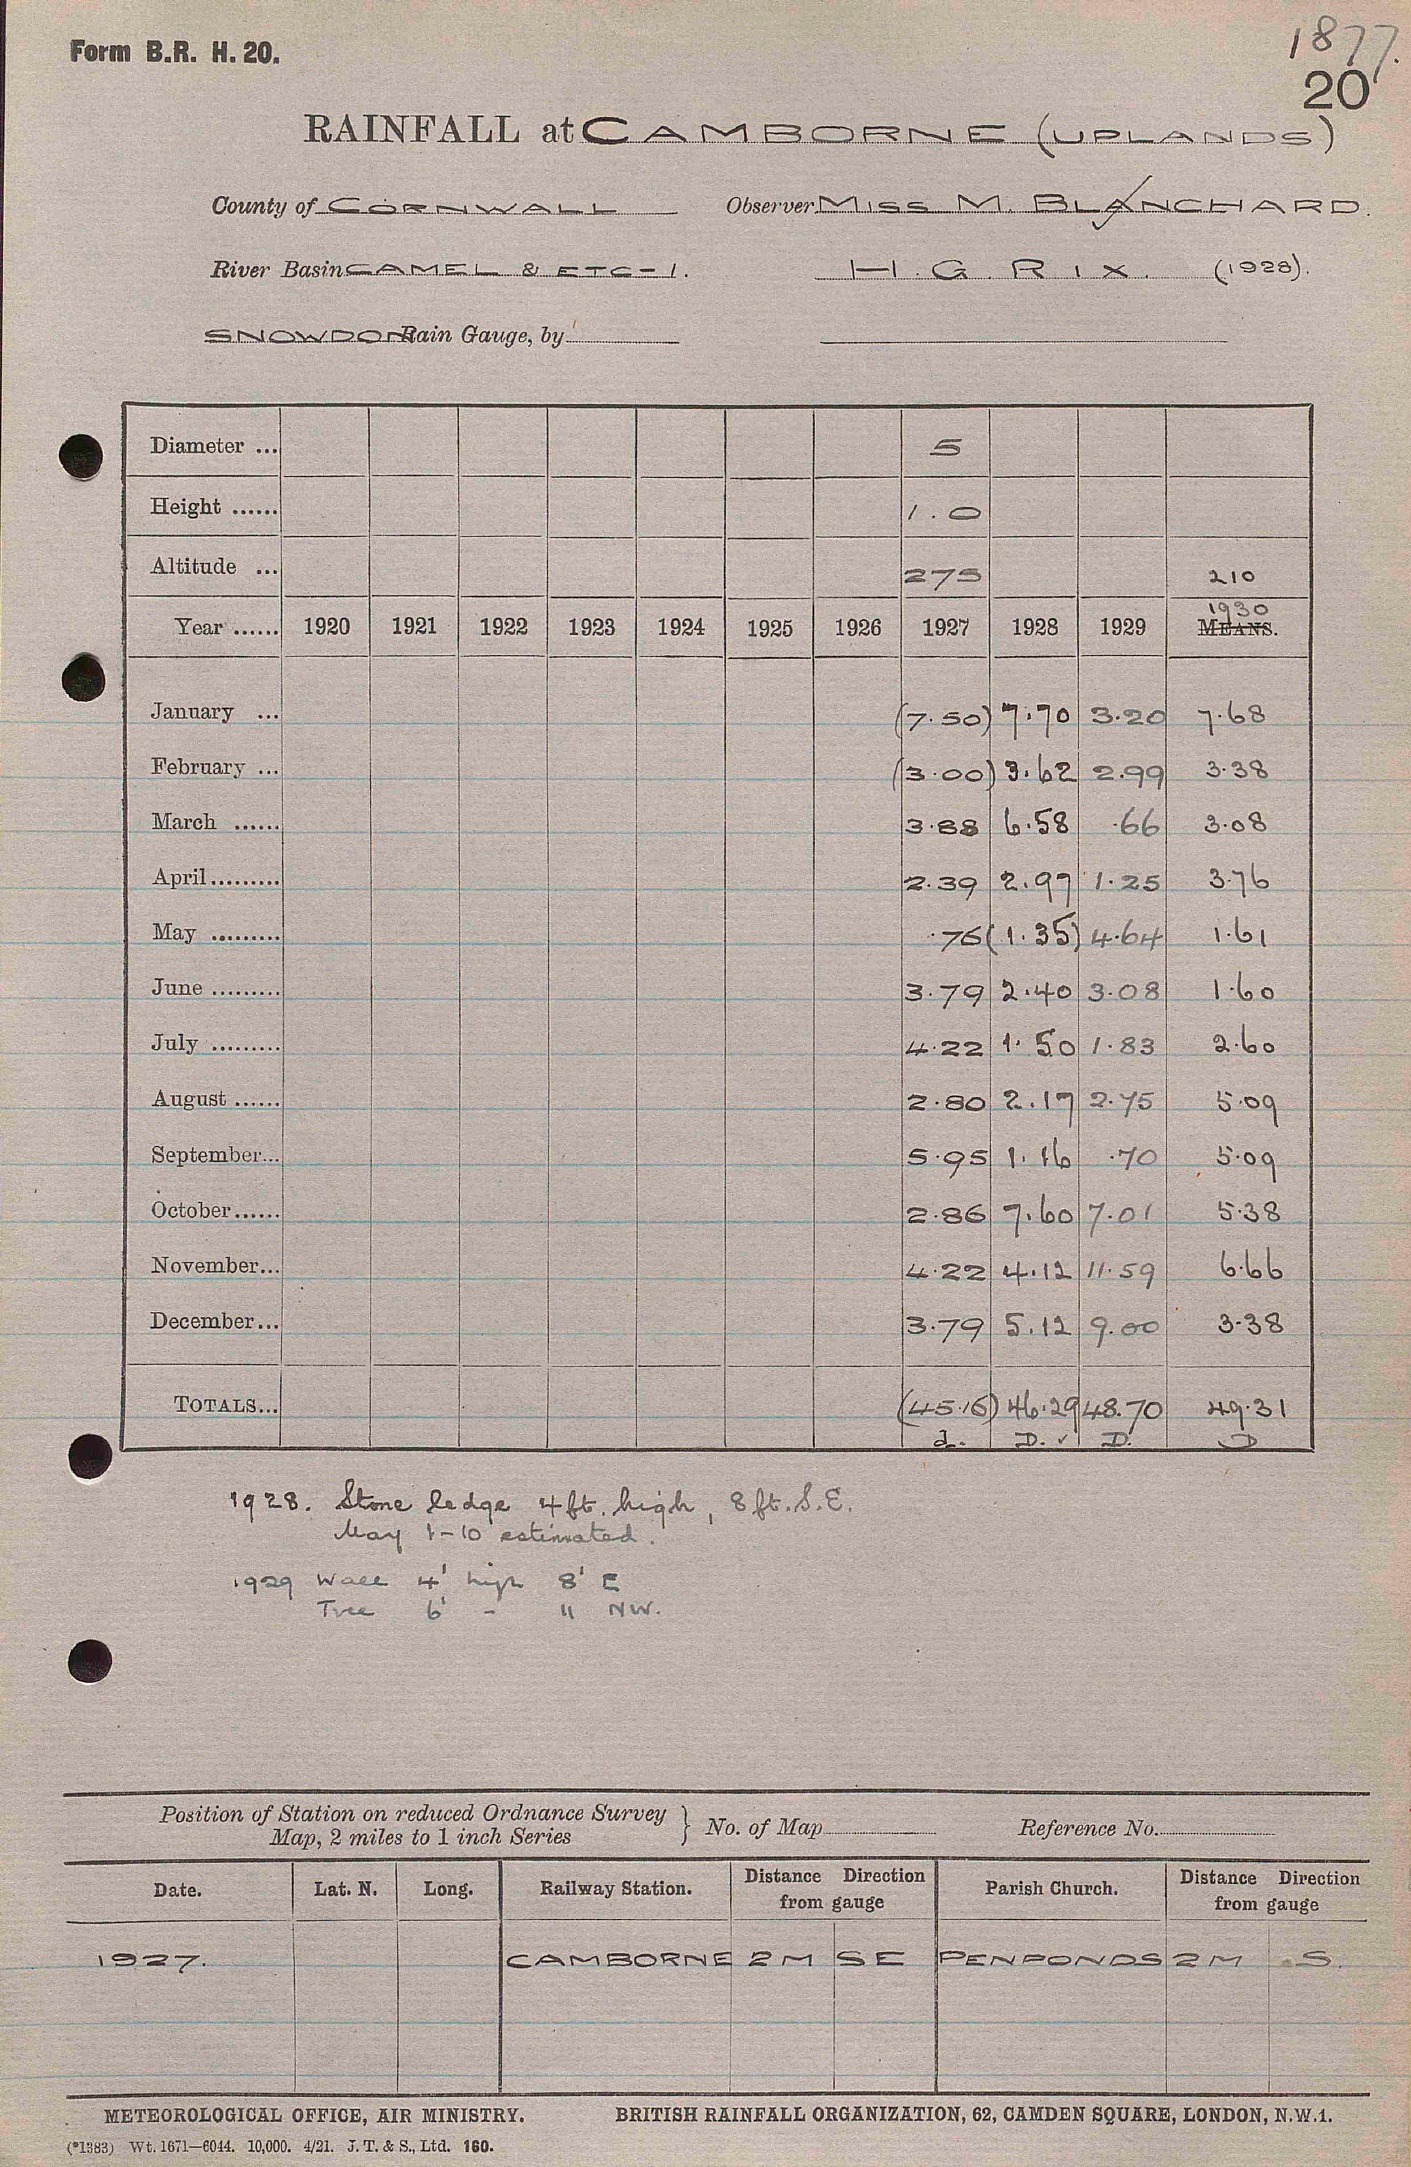 Form B.R. H. 20.
1877.
20
RAINFALL at CAMBORNE (UPLANDS)
County of CORNWALL Observer MISS M. BLANCHARD.
River Basin CAMEL & ETC-1. H. G. RIX. (1928).
SNOWDON Rain Gauge, by
Diameter ... 5
Height ...... 1.0
Altitude ... 275 210
1930
Year ...... 1920 1921 1922 1923 1924 1925 1926 1927 1928 1929 MEANS.
January ... (7.50) 7.70 3.20 7.68
February ... (3.00) 3.62 2.99 3.38
March ...... 3.88 6.58 .66 3.08
April ......... 2.39 2.97 1.25 3.76
May ......... .76 (1.35) 4.64 1.61
June ......... 3.79 2.40 3.08 1.60
July ......... 4.22 1.50 1.83 2.60
August ...... 2.80 2.17 2.75 5.09
September... 5.95 1.16 .70 5.09
October...... 2.86 7.60 7.01 5.38
November... 4.22 4.12 11.59 6.66
December... 3.79 5.12 9.00 3.38
TOTALS... (45.16) 46.29 48.70 49.31
d. D. ✓ D. D
1928. Stone ledge 4ft. high, 8ft. S.E.
May 1-10 estimated.
1929 Wall 4' high 8' E
Tree 6' - 11 NW.
Position of Station on reduced Ordnance Survey
Map, 2 miles to 1 inch Series } No. of Map Reference No.
Date. Lat. N. Long. Railway Station. Distance Direction from gauge Parish Church. Distance Direction from gauge
1927. CAMBORNE 2 M SE PENPONDS 2 M S.
METEOROLOGICAL OFFICE, AIR MINISTRY. BRITISH RAINFALL ORGANIZATION, 62, CAMDEN SQUARE, LONDON, N.W.1.
(*1383) Wt. 1671—6044. 10,000. 4/21. J. T. & S., Ltd. 160.